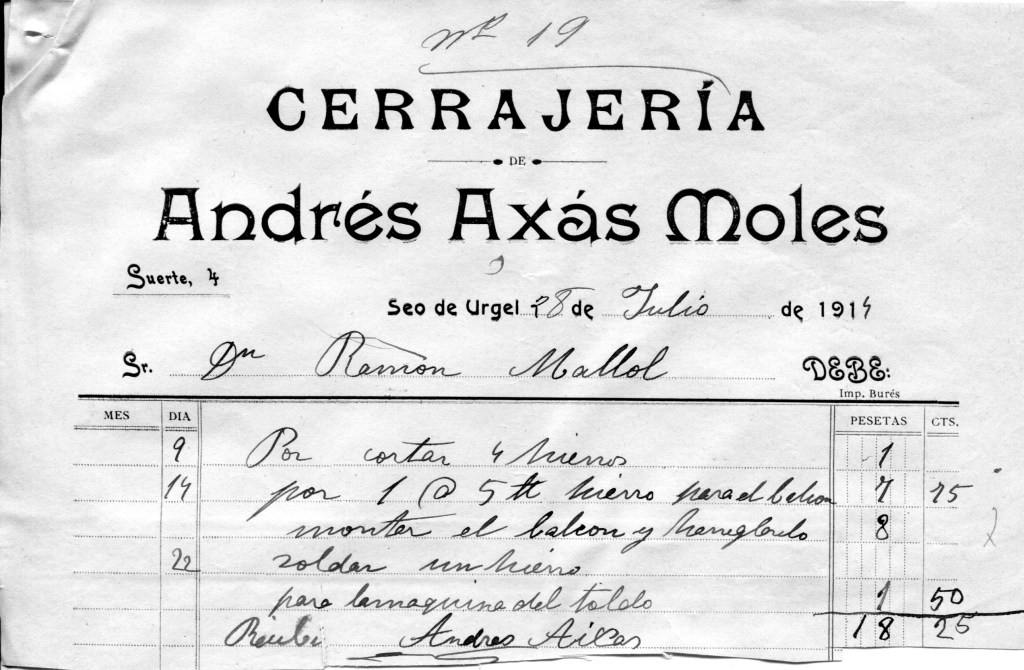 Nº 19
CERRAJERÍA
DE
Andrés Axás Moles
Suerte, 4
Seo de Urgel 28 de Julio de 1914
Sr. Dn Ramon Mallol DEBE:
Imp. Burés
MES DIA PESETAS CTS.
9 Por cortar 4 hierros 1
14 por 1 @ 5 tt hierro para el balcon 7 75
montar el balcon y 8
22 soldar un hierro
para la maquina del toldo 1 50
18 25
Andres Aixas